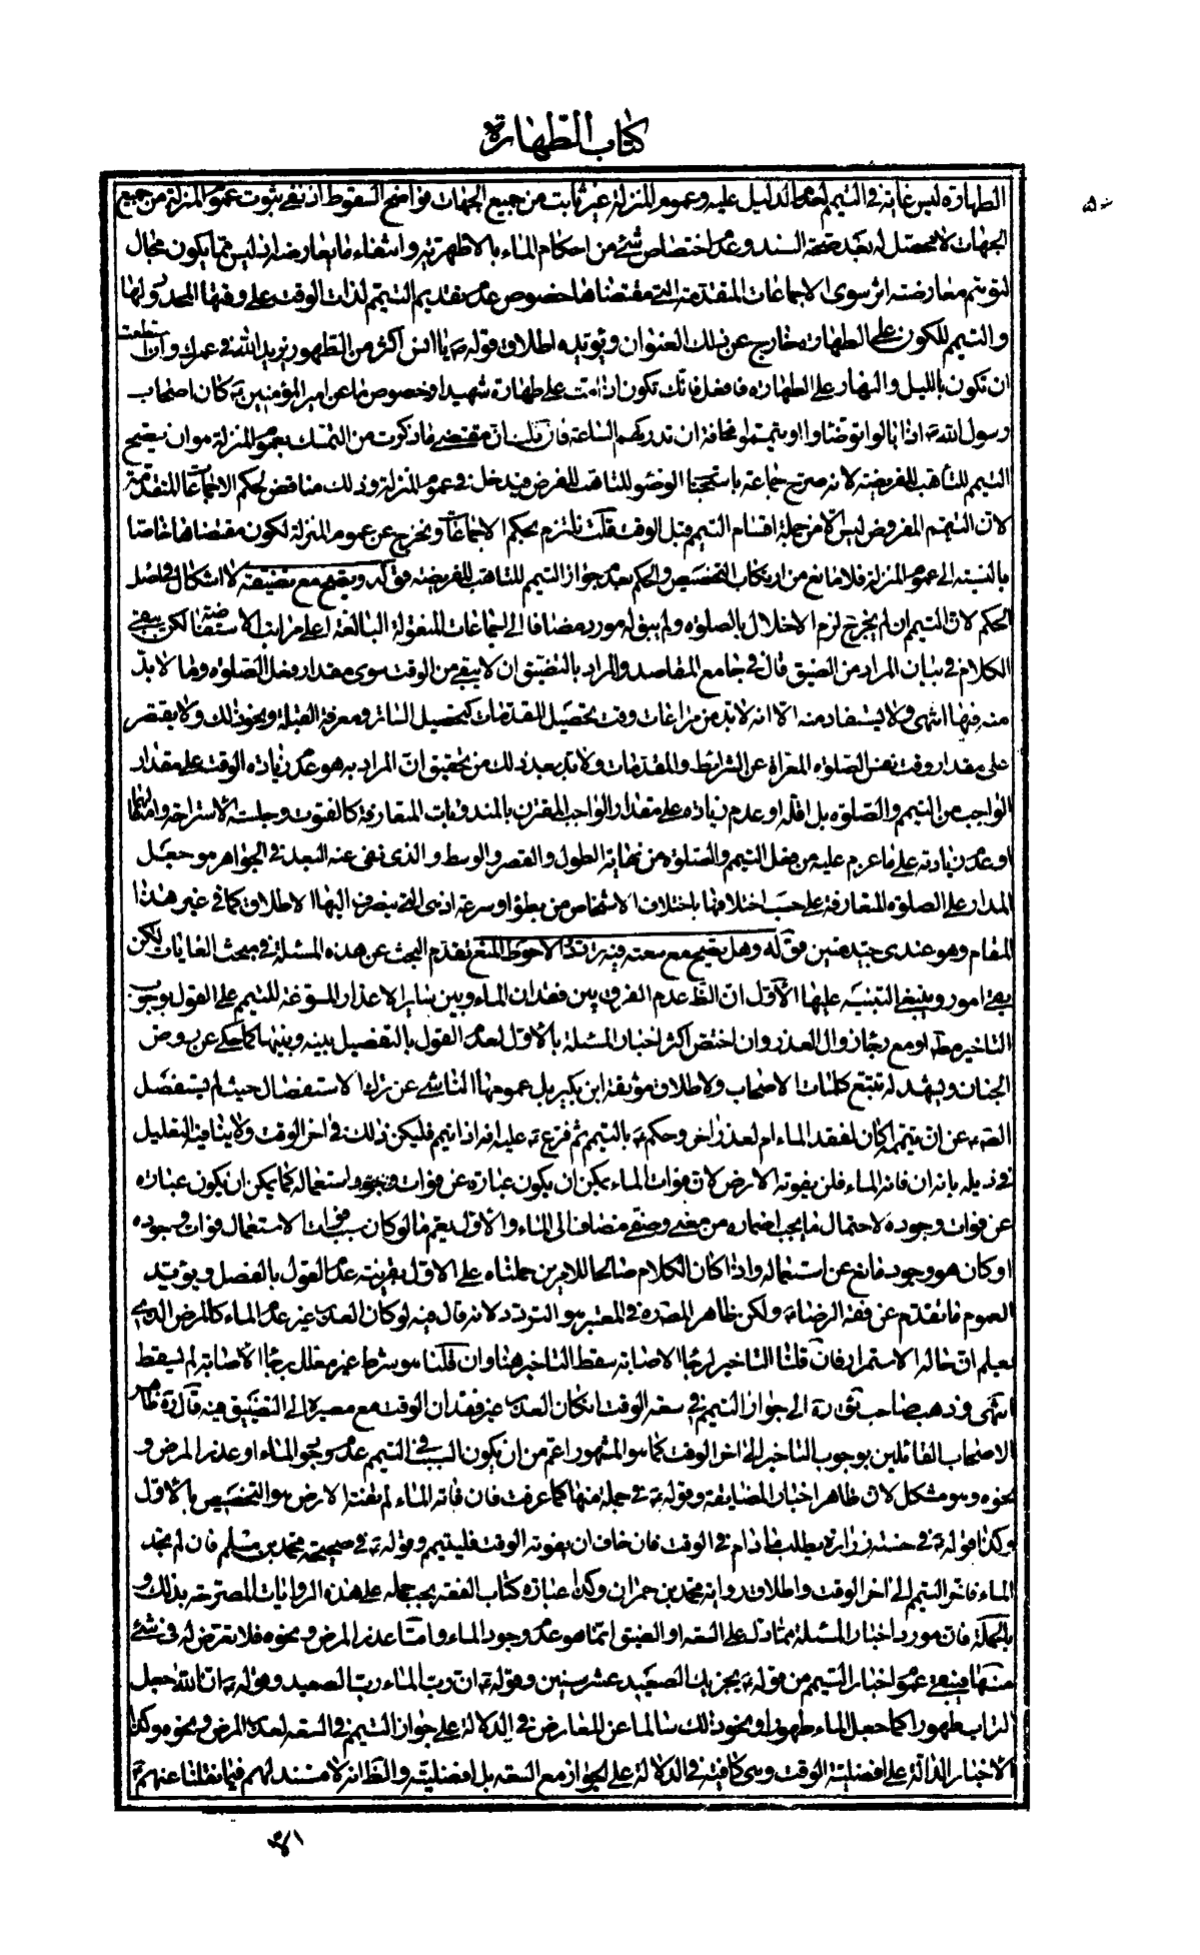 كتاب الطهارة
الطهارة ليس غاية في التيمم لعدم الدليل عليه وعموم المنزلة غير ثابت من جميع الجهات فواضح السقوط اذ نفي ثبوت عموم المنزلة من جميع
الجهات لا محصل له بعد صحة السند وعدم اختصاص شيء من احكام الماء بالاظهرية وانتفاء ما يعارضه اذ ليس مما يكون مجال
لتوهم معارضته اثر سوى الاجماعات المتقدمة التي مقتضاها خصوص عدم تقديم التيمم لذات الوقت على وقتها المحدود لها
والتيمم للكون على الطهارة خارج عن ذلك العنوان ويؤيده اطلاق قوله ص يا انس اكثر من الطهور يزيد الله في عمرك وان استطعت
ان تكون بالليل والنهار على الطهارة فافعل فانك تكون اذا مت على طهارة شهيدا وخصوص ما عن امير المؤمنين ع كان اصحاب
رسول الله ص اذا بالوا توضئوا او يتمموا مخافة ان تدركهم الساعة فان قلت ان مقتضى ما ذكرت من التمسك بعموم المنزلة هو ان يصح
التيمم للتاهب للفريضة لانه صرح جماعة باستحباب الوضوء للتاهب للفرض فيدخل في عموم المنزلة وذلك مناقض لحكم الاجماعات المتقدمة
لان التيمم المفروض ليس الا من جملة اقسام التيمم قبل الوقت قلت نلتزم بحكم الاجماعات ونخرج عن عموم المنزلة لكون مقتضاها خاصا
بالنسبة الى عموم المنزلة فلا مانع من ارتكاب التخصيص والحكم بعدم جواز التيمم للتاهب للفريضة قوله ويصح مع تضيقه لا اشكال في اصل
الحكم لان التيمم ان لم يخرج لزم الاخلال بالصلوة ولم يبق له مورد مضافا الى الاجماعات المنقولة البالغة اعلى مراتب الاستفاضة لكن يبقى
الكلام في بيان المراد من الضيق قال في جامع المقاصد والمراد بالتضيق ان لا يبقى من الوقت سوى مقدار فعل الصلوة وما لا بد
منه فيها انتهى ولا يستفاد منه الا انه لا بد من مراعات وقت تحصيل المقدمات كتحصيل الساتر ومعرفة القبلة ونحو ذلك ولا يقتصر
على مقدار وقت نفس الصلوة المعراة عن الشرائط والمقدمات ولا بد بعد ذلك من تحقيق ان المراد به هو عدم زيادة الوقت على مقدار
الواجب من التيمم والصلوة بل اقله او عدم زيادة على مقدار الواجب المقترن بالمندوبات المتعارفة كالقنوت وجلسة الاستراحة وامثالهما
او عدم زيادته على ما عزم عليه من فعل التيمم والصلوة من نهاية الطول والقصر والوسط والذي نفى عنه البعد في الجواهر هو جعل
المدار على الصلوة المتعارفة على حسب اختلافها باختلاف الاشخاص من بطؤ او سرعة اذ هي التي ينصرف اليها الاطلاق كما في غير هذا
المقام وهو عندي جيد متين قوله وهل يصح مع سعته فيه تردد الاحوط المنع تقدم البحث عن هذه المسئلة في مبحث الغايات لكن
بقي امور وينبغي التنبيه عليها الاول ان الظ عدم الفرق بين فقدان الماء وبين سائر الاعذار المسوغة للتيمم على القول بوجوب
التاخير مط او مع رجاء زوال العذر وان اختص اكثر اخبار المسئلة بالاول لعدم القول بالتفصيل بينه وبينها كما حكي عن روض
الجنان ويشهد له تتبع كلمات الاصحاب ولاطلاق موثقة ابن بكير بل عمومها الناشئ عن ترك الاستفصال حيث لم يستفصل
الصادق ع عن ان تيممه كان لفقد الماء ام لعذر اخر وحكم ع بالتيمم ثم فرع ع عليه انه اذا تيمم فليكن ذلك في اخر الوقت ولا ينافيه التعليل
في ذيله بانه ان فاته الماء فلن يفوته الارض لان فوات الماء يمكن ان يكون عبارة عن فوات وجود استعماله كما يمكن ان يكون عبارة
عن فوات وجوده لاحتمال ما يجب اضماره من معنى وصفي مضاف الى الماء والاول يعم ما لو كان سبب فوات الاستعمال فوات وجوده
او كان هو وجود مانع عن استعماله واذا كان الكلام صالحا للامرين حملناه على الاول بقرينة عدم القول بالفصل ويؤيد
العموم ما تقدم عن فقه الرضا ع ولكن ظاهر المصنف ره في المعتبر هو التردد لانه قال فيه لو كان العذر غير عدم الماء كالمرض الذي
يعلم ان حاله الاستمرار فان قلنا التاخير لرجاء الاصابة سقط التاخير هنا وان قلنا هو شرط غير معلل برجاء الاصابة لم يسقط
انتهى وذهب صاحب ئق ره الى جواز التيمم في سعة الوقت اذا كان العذر غير فقدان الوقت مع مصيره الى التضيق فيه قال ره ظاهر
الاصحاب القائلين بوجوب التاخير الى اخر الوقت كما هو المشهور اعم من ان يكون السبب في التيمم عدم وجود الماء او عذر المرض و
نحوه وهو مشكل لان ظاهر اخبار المضايقة وقوله ع في جملة منها كما عرفت فان فاته الماء لم تفته الارض هو التخصيص بالاول
وكذا قوله ع في حسنة زرارة يطلب ما دام في الوقت فان خاف ان يفوته الوقت فليتيمم وقوله ع في صحيحة محمد بن مسلم فان لم تجد
الماء فاخر التيمم الى اخر الوقت واطلاق رواية محمد بن حمران وكذا عبارة كتاب الفقه يجب حمله على هذه الروايات المصرحة بذلك و
بالجملة فان مورد اخبار المسئلة مما دل على السعة او الضيق انما هو عدم وجود الماء واما عذر المرض ونحوه فلا تعرض له في شيء
منها فيبقى عموم اخبار التيمم من قوله ع يجزيك الصعيد عشر سنين وقوله ع ان رب الماء رب الصعيد وقوله ع ان الله جعل
التراب طهورا كما جعل الماء طهورا ونحو ذلك سالما عن المعارض في الدلالة على جواز التيمم في السعة لعذر المرض ونحوه وكذا
الاخبار الدالة على افضلية الوقت وهي كافية في الدلالة على الجواز مع السعة بل افضليته والظ انه لا مستند لهم فيما نقلنا عنهم